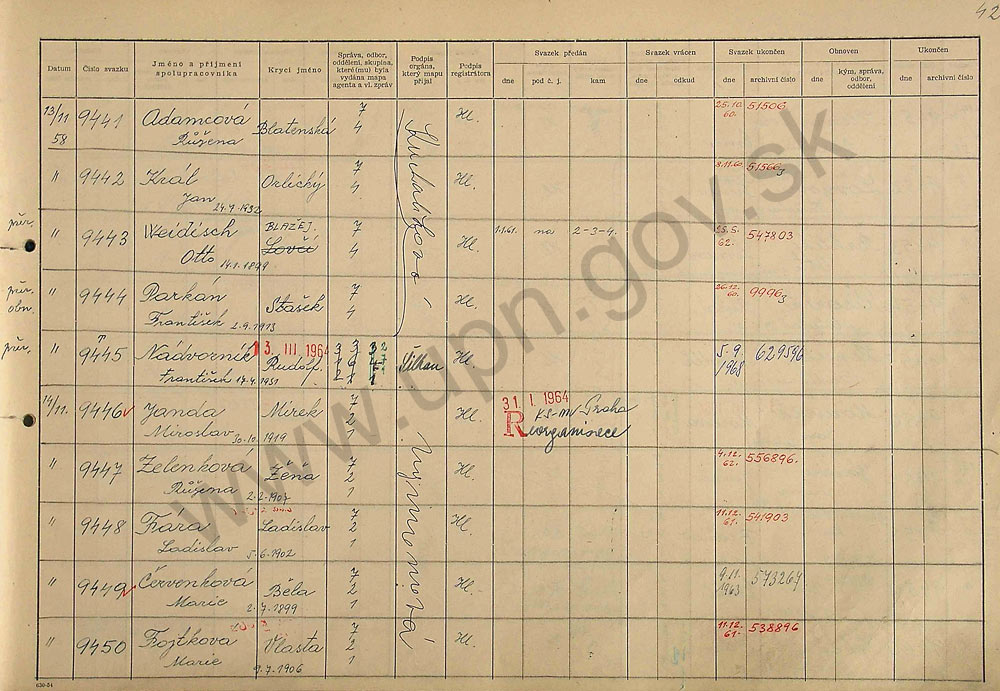 42
Datum
Číslo svazku
Jméno a příjmení
spolupracovníka
Krycí jméno
Správa, odbor,
oddělení, skupina,
které(mu) byla
vydána mapa
agenta a vl. zpráv
Podpis
orgána,
který mapu
přijal
Podpis
registrátora
Svazek předán
dne
pod č. j.
kam
Svazek vrácen
dne
odkud
Svazek ukončen
dne
archivní číslo
Obnoven
dne
kým, správa,
odbor,
oddělení
Ukončen
dne
archivní číslo
13/11 9441 Adamcová Blatenská 7 Hl. 25.10. 51506
58 Růžena 4 60.
" 9442 Král Orlický 7 Hl. 8.11.60 51566
Jan 24.9.1932 4
" 9443 Weidisch BLAŽEJ. 7 Hl. 1.1.61. na 2-3-4. 25.5. 547803
Otto 14.1.1899 4 62.
" 9444 Parkán Stašek 7 Hl. 26.12. 9996
František 2.9.1913 4 60.
" 9445 Nádvorník 13. III. 1964 Rudolf Hl. 5.9. 629596
František 17.4.1931 /1968
14/11. 9446 Janda Mirek 7 Hl. 31. I. 1964 KS-MV Praha
Miroslav 30.10.1919 2 Reorganisace
1
" 9447 Zelenková Žěňa 7 Hl. 4.12. 556896.
Růžena 2.2.1907 2 62.
1
" 9448 Fiára Ladislav 7 Hl. 11.12. 541903
Ladislav 5.6.1902 2 61.
1
" 9449 Červenková Běla 7 Hl. 9.11. 573267
Marie 2.7.1899 2 1963
1
" 9450 Fojtková Vlasta 7 Hl. 11.12. 538896
Marie 9.7.1906 2 61.
1
630-54
www.upn.gov.sk